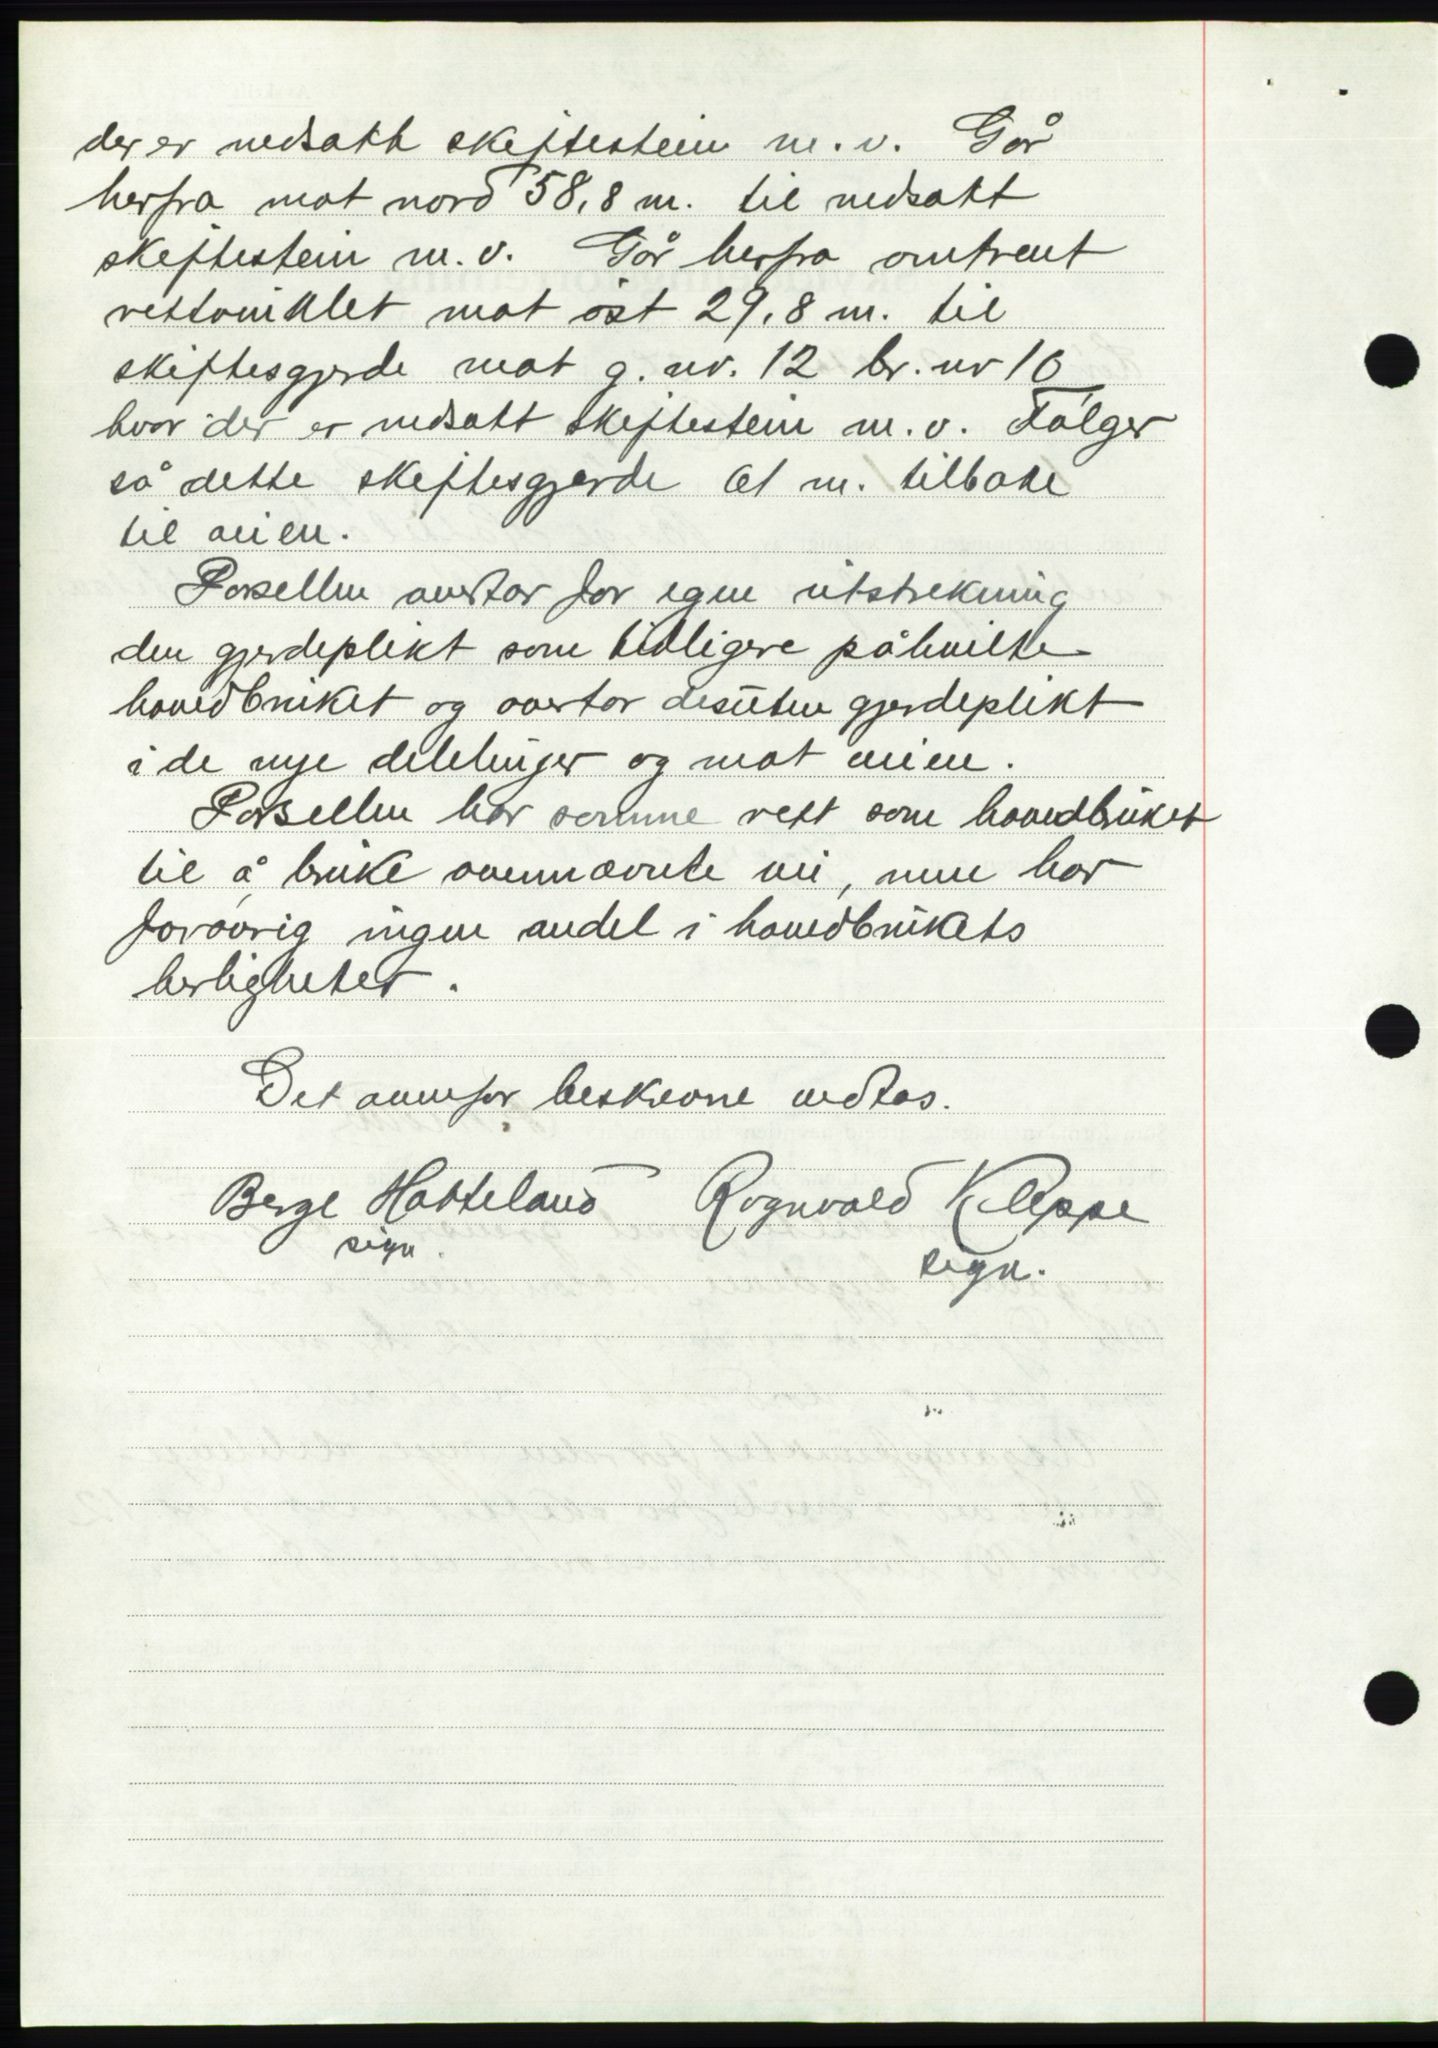 der er nedsatt skiftestein m.v. Går
herfra mot nord 58,8 m. til nedsatt
skiftestein m.v. Går herfra omtrent
rettvinklet mot øst 29,8 m. til
skiftesgjerde mot g. nr. 12 br. nr 10
hvor der er nedsatt skiftestein m.v. Følger
så dette skiftesgjerde 61 m. tilbake
til veien.
Parsellen overtar for egen utstrekning
den gjerdeplikt som tidligere påhvilte
hovedbruket og overtar desuten gjerdeplikt
i de nye delelinjer og mot veien.
Parsellen har samme rett som hovedbruket
til å bruke ovennævnte vei, men har
forøvrig ingen andel i hovedbrukets
herligheter.
Det ovenfor beskrevne vedtas.
Berge Hatteland Rognvald Kleppe
sign. sign.